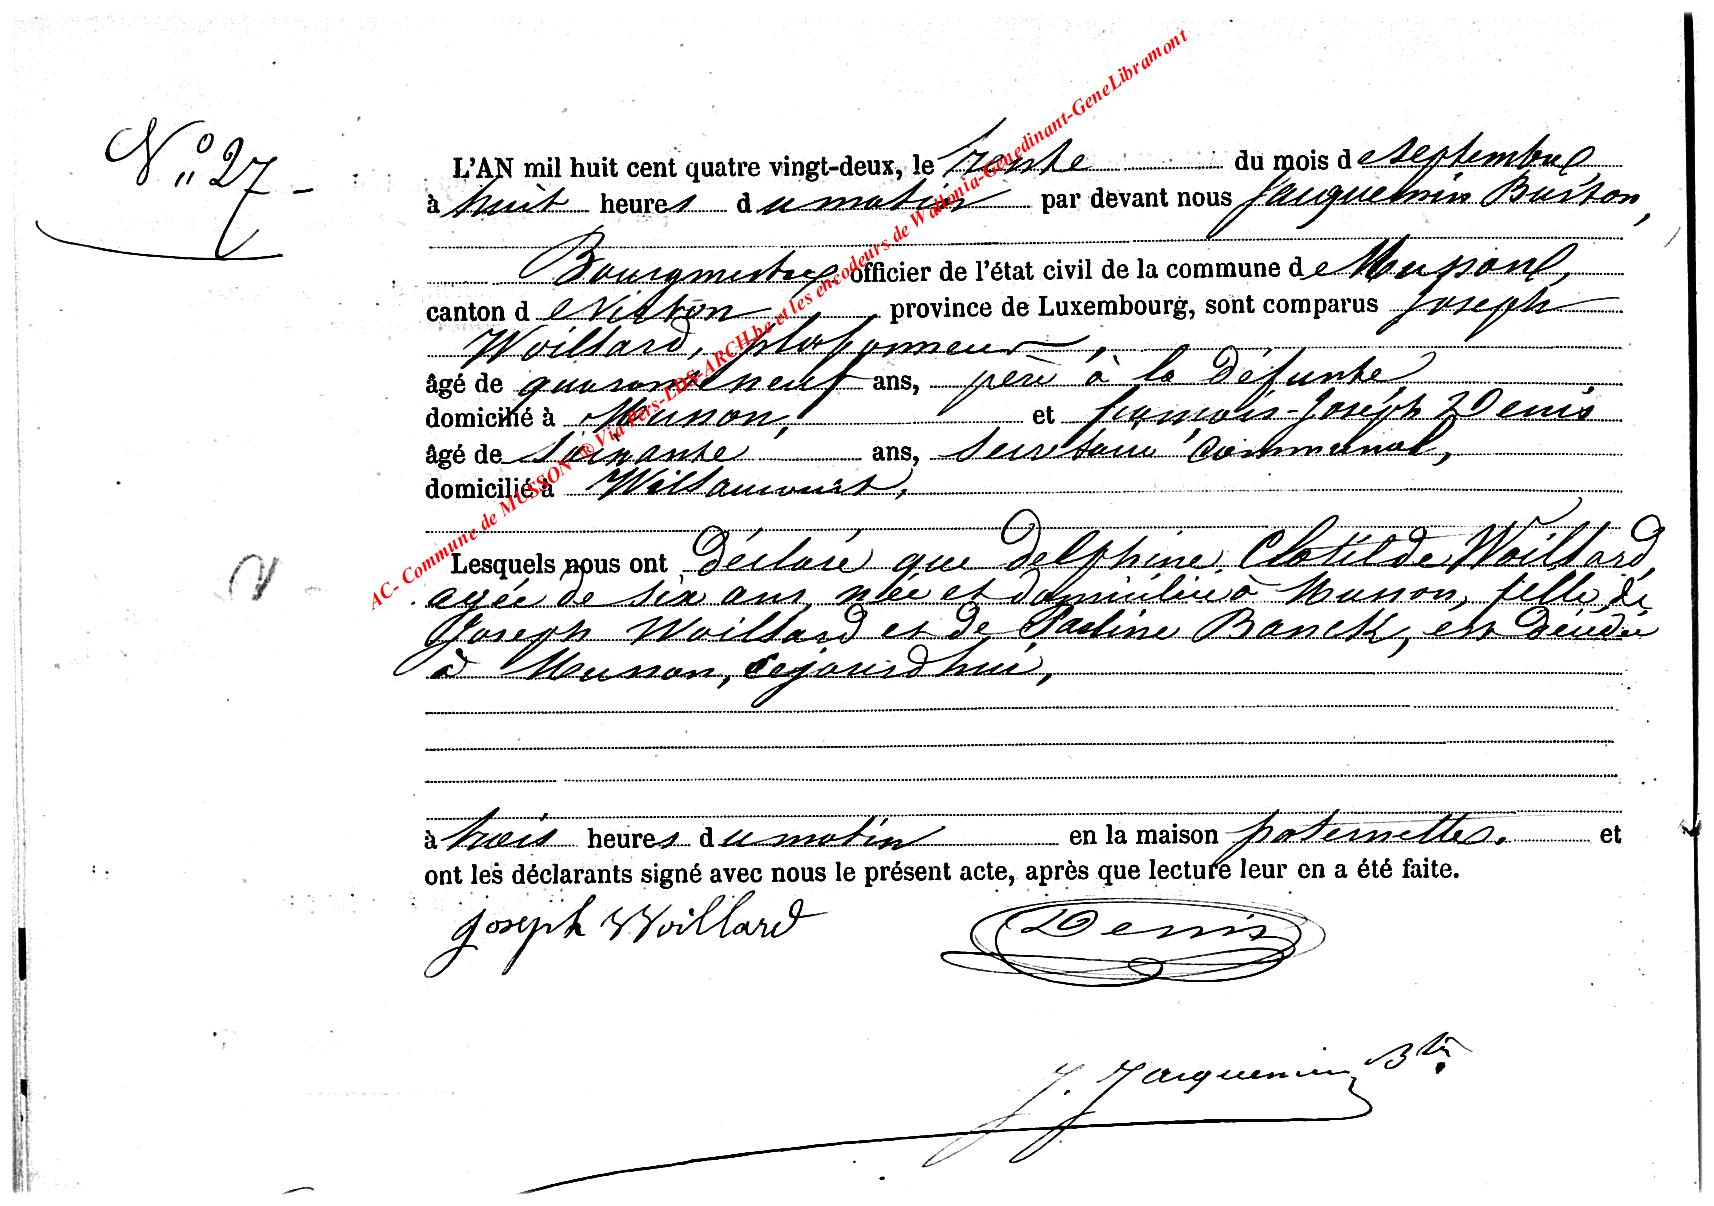 N° 27 -
L'AN mil huit cent quatre vingt-deux, le trente du mois de septembre
à huit heures du matin par devant nous Jacquemin Buiron,
Bourgmestre, officier de l'état civil de la commune de Musson,
canton de Virton province de Luxembourg, sont comparus Joseph
Woillard, plafonneur,
âgé de quarante neuf ans, père à la défunte,
domicilié à Musson, et françois-Joseph Denis
âgé de soixante ans, secrétaire communal,
domicilié à Willancourt,
Lesquels nous ont Déclaré que delphine, Clotilde Woillard,
agée de six ans, née et domiciliée à Musson, fille de
Joseph Woillard et de Pauline Banck, est Décédée
à Musson, cejourd'hui,
à trois heures du matin en la maison paternelles. et
ont les déclarants signé avec nous le présent acte, après que lecture leur en a été faite.
Joseph Woillard Denis
J. Jacquemin
AC- Commune de MUSSON ® Via Pers-LDS-ARCH.be et les encodeurs de Wallonia-Genedinant-GeneLibramont